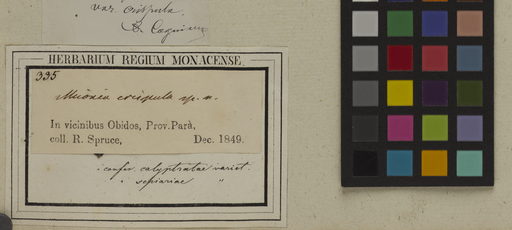 var. crispula.
B. Cogniaux
HERBARIUM REGIUM MONACENSE.
335
Miconia crispula sp. n.
In vicinibus Obidos, Prov. Parà,
coll. R. Spruce, Dec. 1849.
confer calyptratae variet.
" sepiariae "